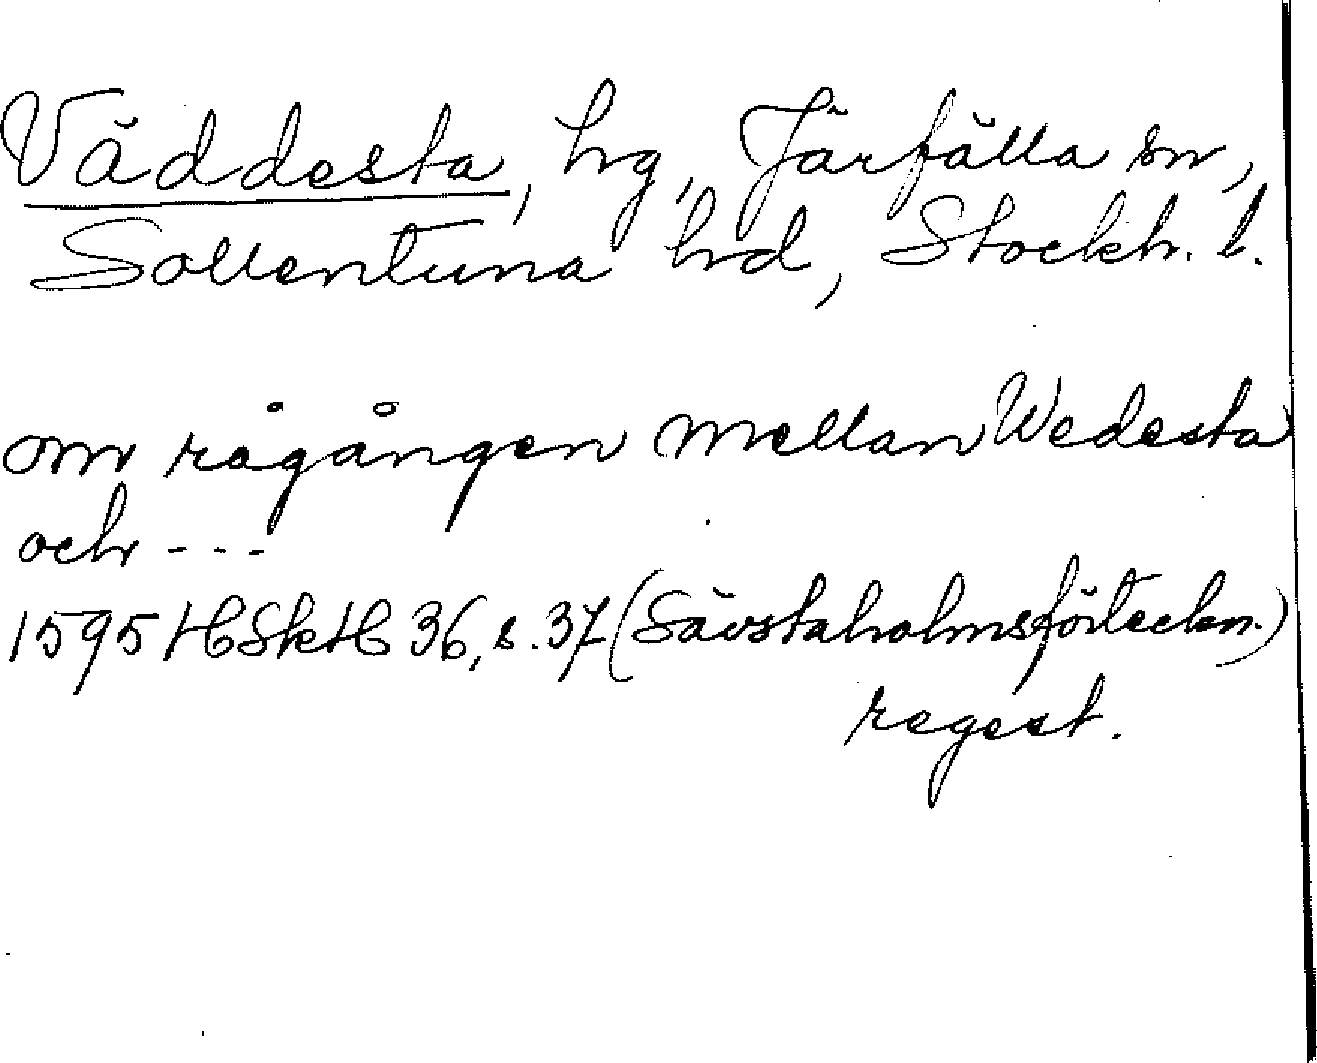 Väddesta, hg, Järfälla sn,
Sollentuna hd, Stockh. l.
om rågången mellan Wedesta
och - - -
1595 HSkH 36, s. 37 (Sävstaholmsförteckn.)
regest.